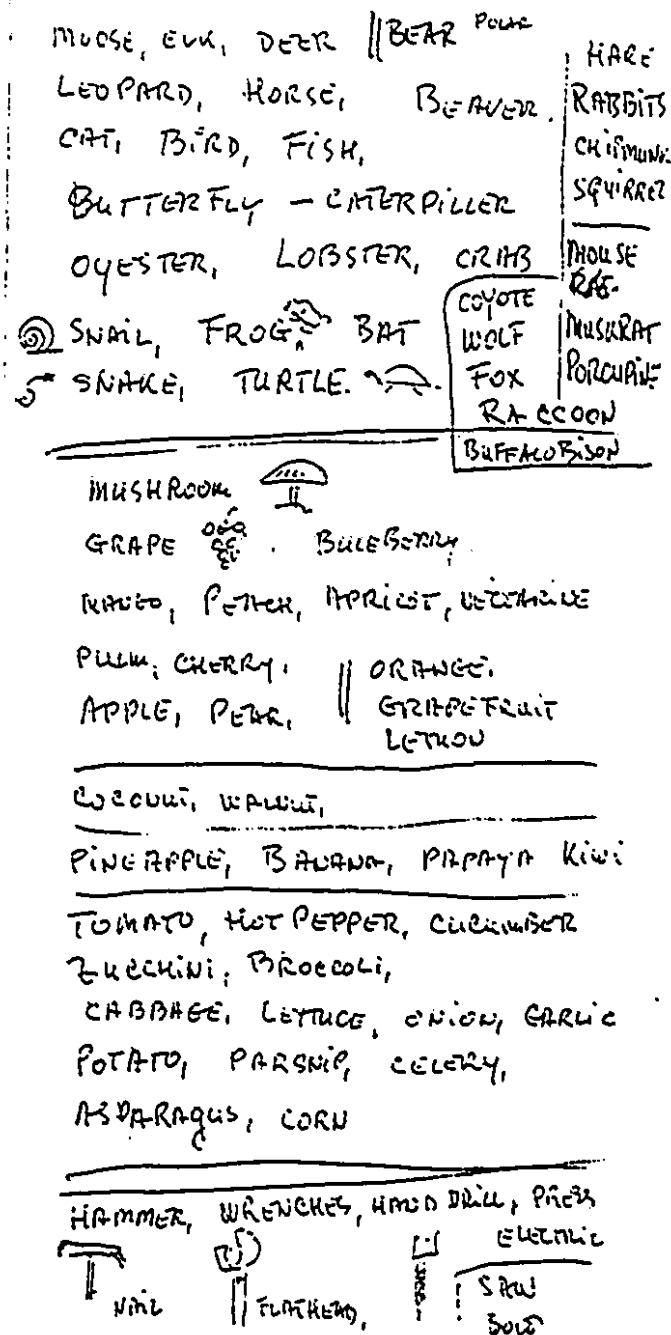 MOOSE, ELK, DEER || BEAR POLAR
LEOPARD, HORSE, BEAVER.
CAT, BIRD, FISH,
BUTTERFLY - CATERPILLER
OYESTER, LOBSTER, CRAB
SNAIL, FROG, BAT
SNAKE, TURTLE.
HARE
RABBITS
CHIPMUNK
SQUIRREL
MOUSE
RAT
MUSKRAT
PORCUPINE
COYOTE
WOLF
FOX
RACCOON
BUFFALO BISON
MUSHROOM
GRAPE . BULEBERRY
MANGO, PEACH, APRICOT, NECTARINE
PLUM, CHERRY,
APPLE, PEAR,
ORANGE,
GRAPEFRUIT
LEMON
COCONUT, WALNUT,
PINEAPPLE, BANANA, PAPAYA KIWI
TOMATO, HOT PEPPER, CUCUMBER
ZUCCHINI, BROCCOLI,
CABBAGE, LETTUCE, ONION, GARLIC
POTATO, PARSNIP, CELERY,
ASPARAGUS, CORN
HAMMER, WRENCHES, HAND DRILL, PRESS
ELECTRIC
NAIL FLATHEAD, SAW
BOLT